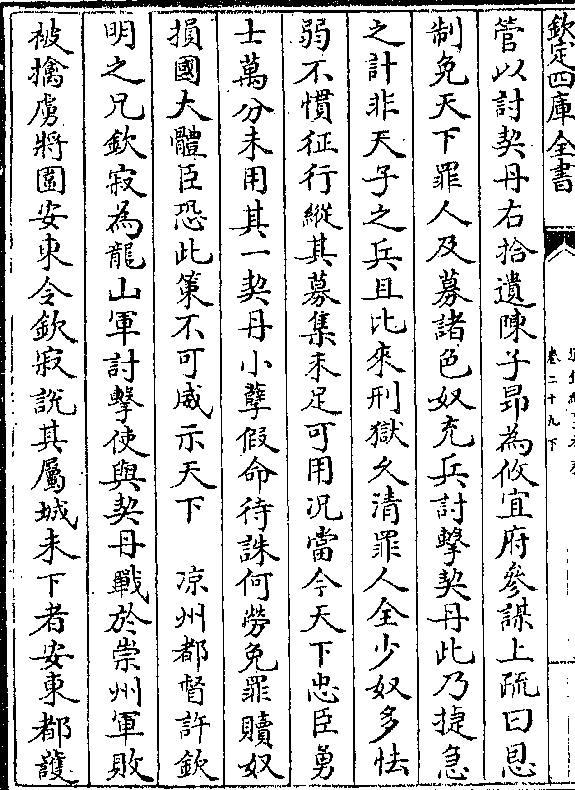 欽定四庫全書
卷二十九下
管以討契丹右拾遺陳子昻為攸宜府參謀上疏曰恩
制免天下罪人及募諸色奴充兵討擊契丹此乃捷急
之計非天子之兵且比來刑獄久清罪人全少奴多怯
弱不慣征行縱其募集未足可用況當今天下忠臣勇
士萬分未用其一契丹小孽假命待誅何勞免罪贖奴
損國大體臣恐此策不可威示天下　凉州都督許欽
明之兄欽寂為龍山軍討擊使與契丹戰於崇州軍敗
被擒虜將圍安東令欽寂說其屬城未下者安東都護